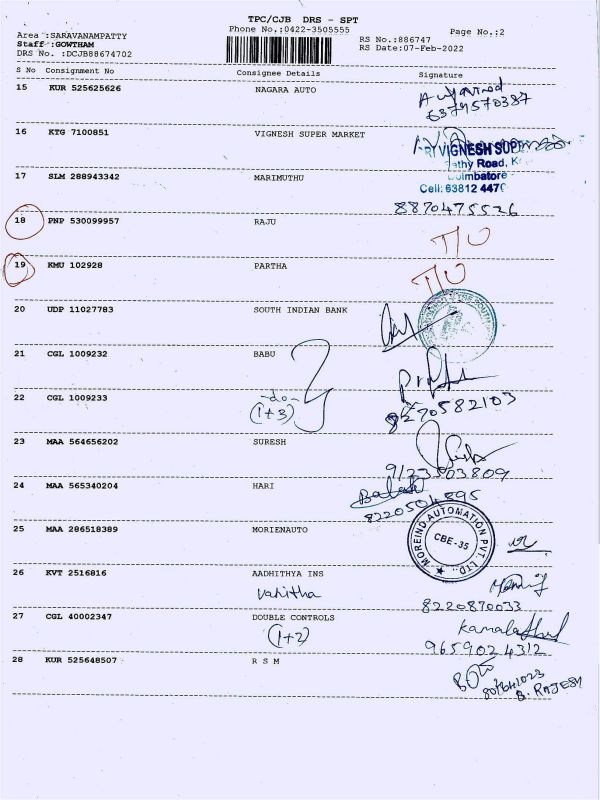 TPC/CJB DRS - SPT
Phone No.:0422-3505555
Page No.:2
Area :SARAVANAMPATTY
Staff :GOWTHAM
RS No.:886747
DRS No. :DCJB88674702
RS Date:07-Feb-2022
S No Consignment No Consignee Details Signature
15 KUR 525625626 NAGARA AUTO
6374570387
16 KTG 7100851 VIGNESH SUPER MARKET
VIGNESH SUP
Road, K
Coimbatore
Cell: 63812 447
17 SLM 288943342 MARIMUTHU
8870475526
18 PNP 530099957 RAJU
T/U
19 KMU 102928 PARTHA
T/U
20 UDP 11027783 SOUTH INDIAN BANK
21 CGL 1009232 BABU
22 CGL 1009233 -do-
(1+3)
8270582103
23 MAA 564656202 SURESH
24 MAA 565340204 HARI
Balaji
25 MAA 286518389 MORIENAUTO
MOREIND AUTOMATION PVT. LTD.,
CBE-35
26 KVT 2516816 AADHITHYA INS
Vanitha
8220870033
27 CGL 40002347 DOUBLE CONTROLS
(1+2)
9659024312
28 KUR 525648507 R S M
B. RAJESH